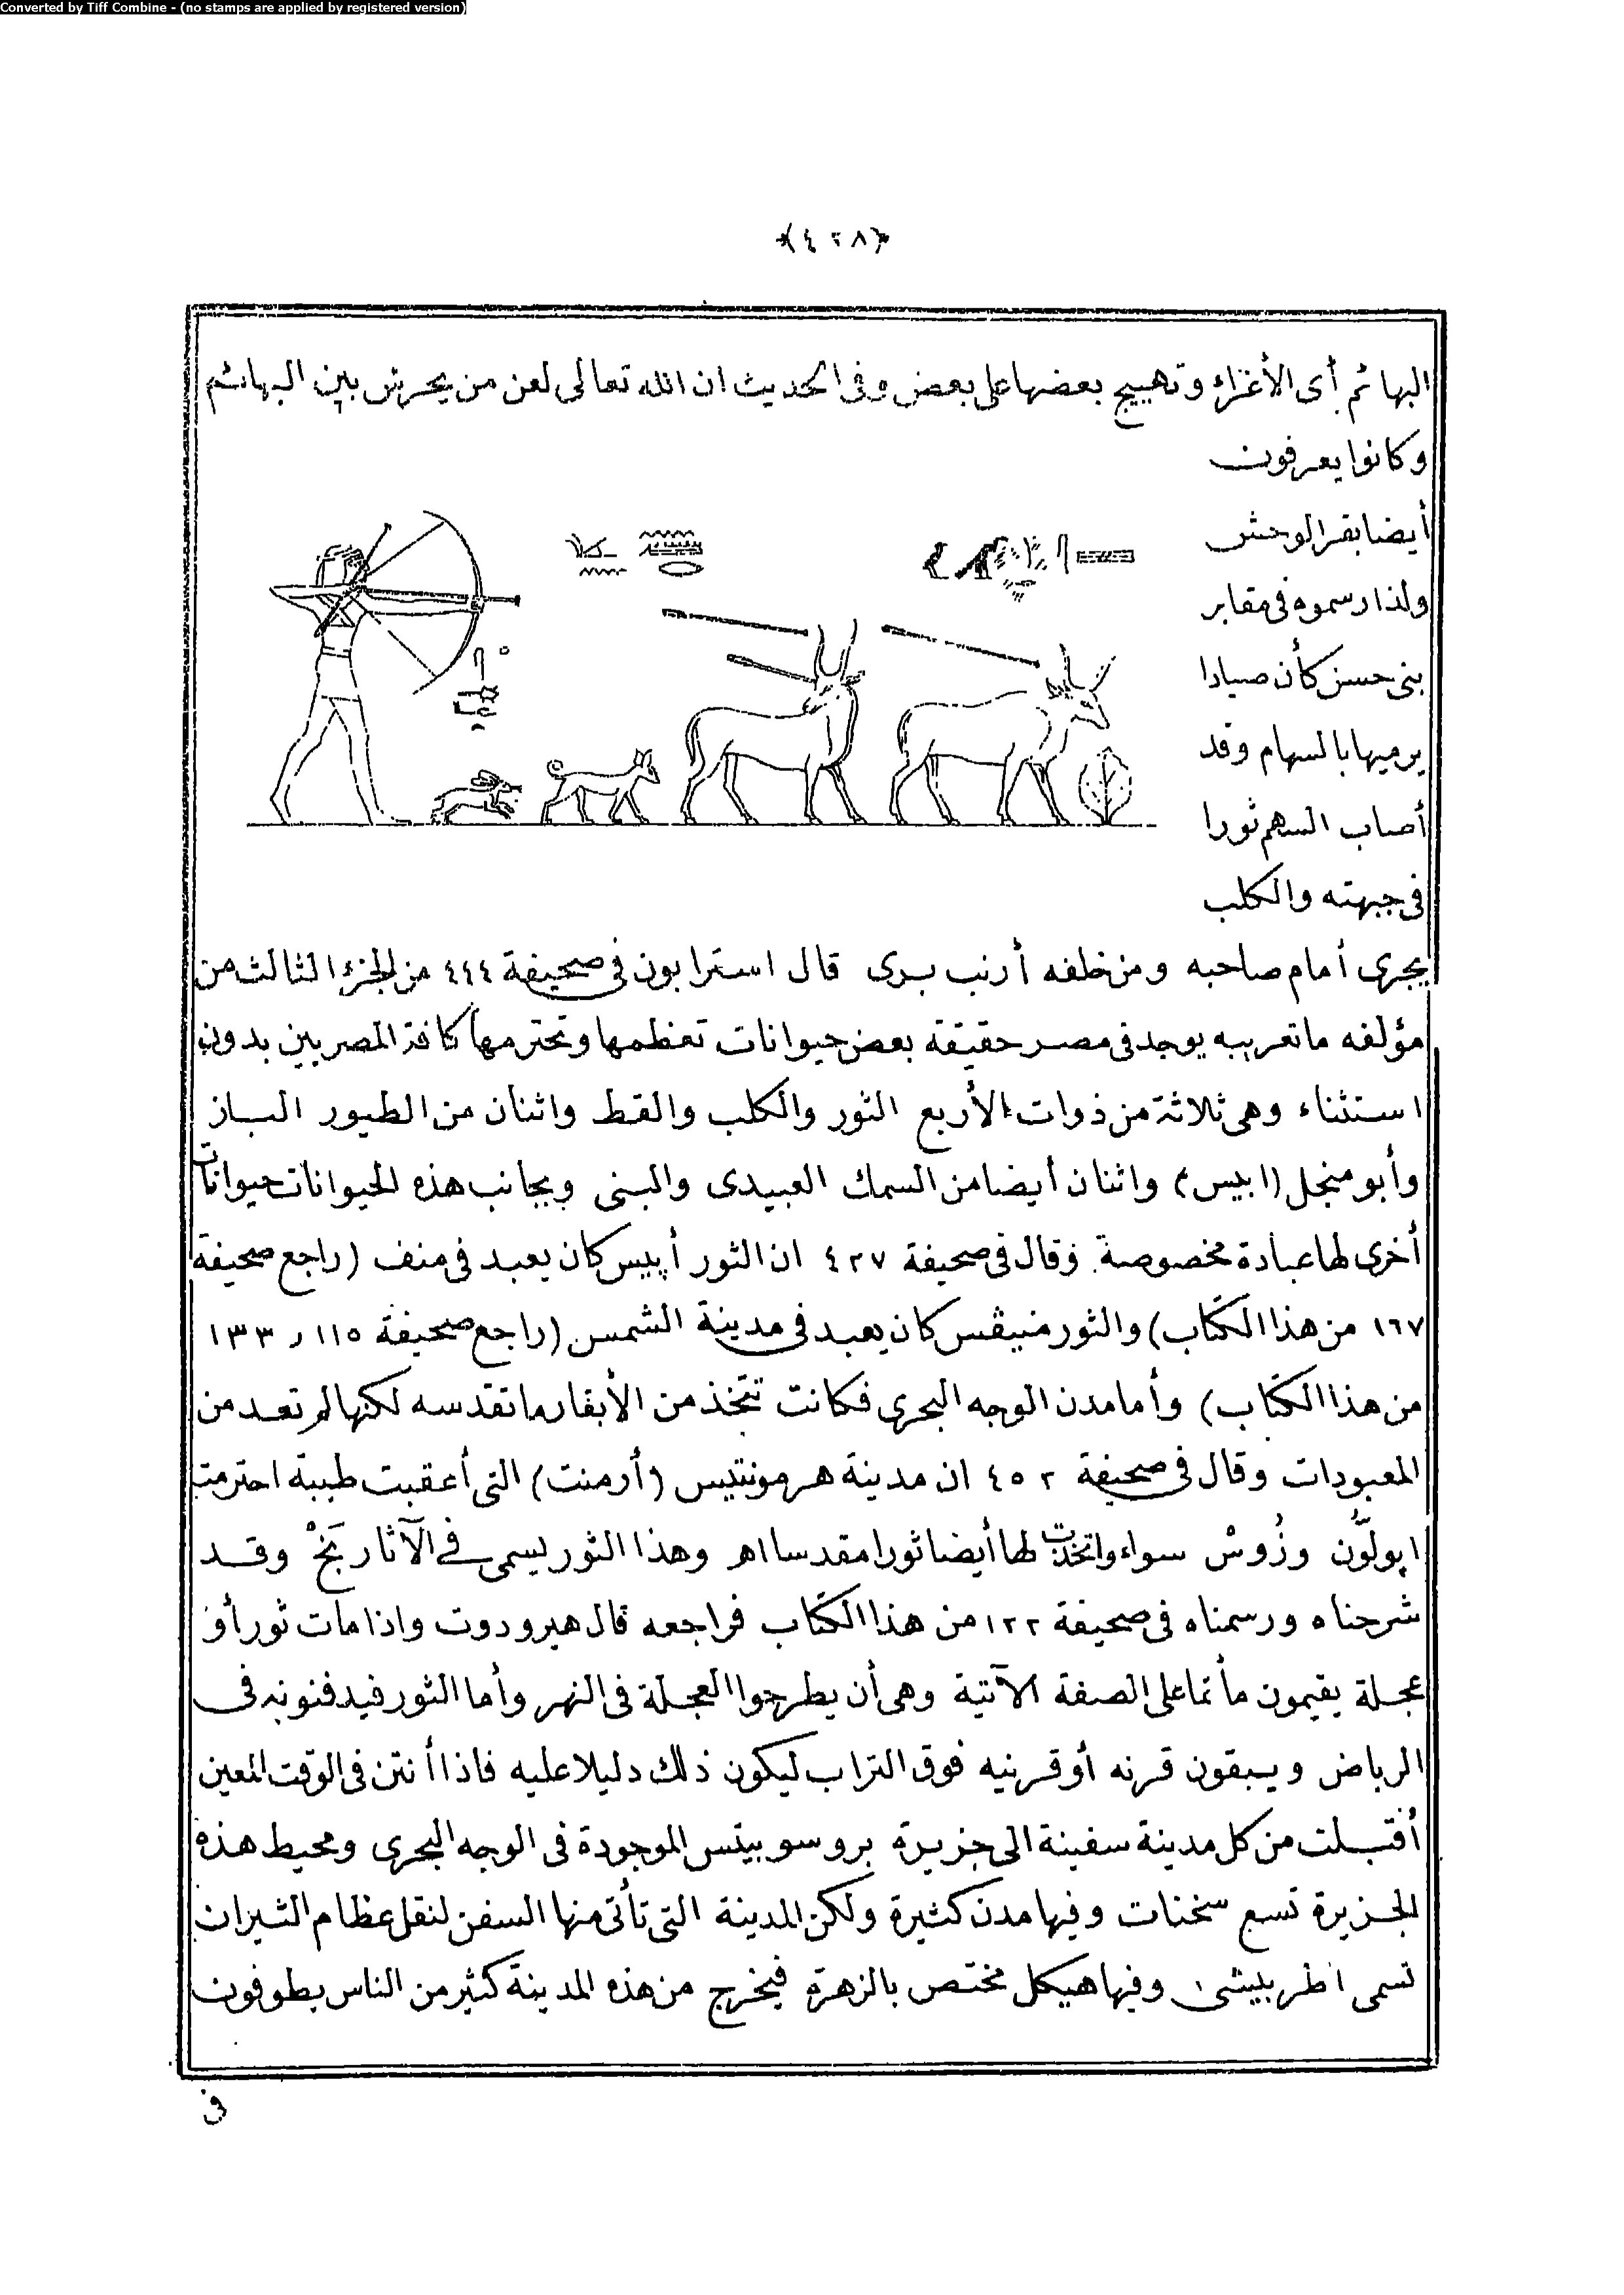 Converted by Tiff Combine - (no stamps are applied by registered version)
﴿٤٢٨﴾
البهائم أى الأغراء وتهييج بعضها على بعض وفى الحديث ان الله تعالى لعن من يحرش بين البهائم
وكانوا يعرفون
أيضا بقر الوحش
ولذا رسموه فى مقابر
بنى حسن كأن صيادا
يرميها بالسهام وقد
أصاب السهم ثورا
فى جبهته والكلب
يجرى أمام صاحبه ومن خلفه أرنب برى قال استرابون فى صحيفة ٤٤٤ من الجزء الثالث من
مؤلفه ما تعريبه يوجد فى مصر حقيقة بعض حيوانات تعظمها وتحترمها كافة المصريين بدون
استثناء وهى ثلاثة من ذوات الأربع الثور والكلب والقط واثنان من الطيور الباز
وأبو منجل (ابيس) واثنان أيضا من السمك العبيدى والبنى وبجانب هذه الحيوانات حيوانات
أخرى لها عبادة مخصوصة وقال فى صحيفة ٤٢٧ ان الثور أپيس كان يعبد فى منف (راجع صحيفة
١٦٧ من هذا الكتاب) والثور منيڤس كان يعبد فى مدينة الشمس (راجع صحيفة ١١٥ ر ١٣٣
من هذا الكتاب) وأما مدن الوجه البحرى فكانت تتخذ من الأبقار ما تقدسه لكنها لم تعد من
المعبودات وقال فى صحيفة ٤٥٢ ان مدينة هرمونتيس (أرمنت) التى أعقبت طيبة احترمت
اپولُّون وزُوسْ سواء واتخذت لها أيضا ثورا مقدسا اه وهذا الثور يسمى فى الآثار بَخْ وقد
شرحناه ورسمناه فى صحيفة ١٢٢ من هذا الكتاب فراجعه قال هيرودوت واذا مات ثور أو
عجلة يقيمون مأتما على الصفة الآتية وهى أن يطرحوا العجلة فى النهر وأما الثور فيدفنونه فى
الرياض ويبقون قرنه أو قرنيه فوق التراب ليكون ذلك دليلا عليه فاذا أنتن فى الوقت المعين
أقبلت من كل مدينة سفينة الى جزيرة بروسوبيتس الموجودة فى الوجه البحرى ومحيط هذه
الجزيرة تسع سخنات وفيها مدن كثيرة ولكن المدينة التى تأتى منها السفن لنقل عظام الثيران
تسمى اطربيشى وفيها هيكل مختص بالزهرة فيخرج من هذه المدينة كثير من الناس يطوفون
فى